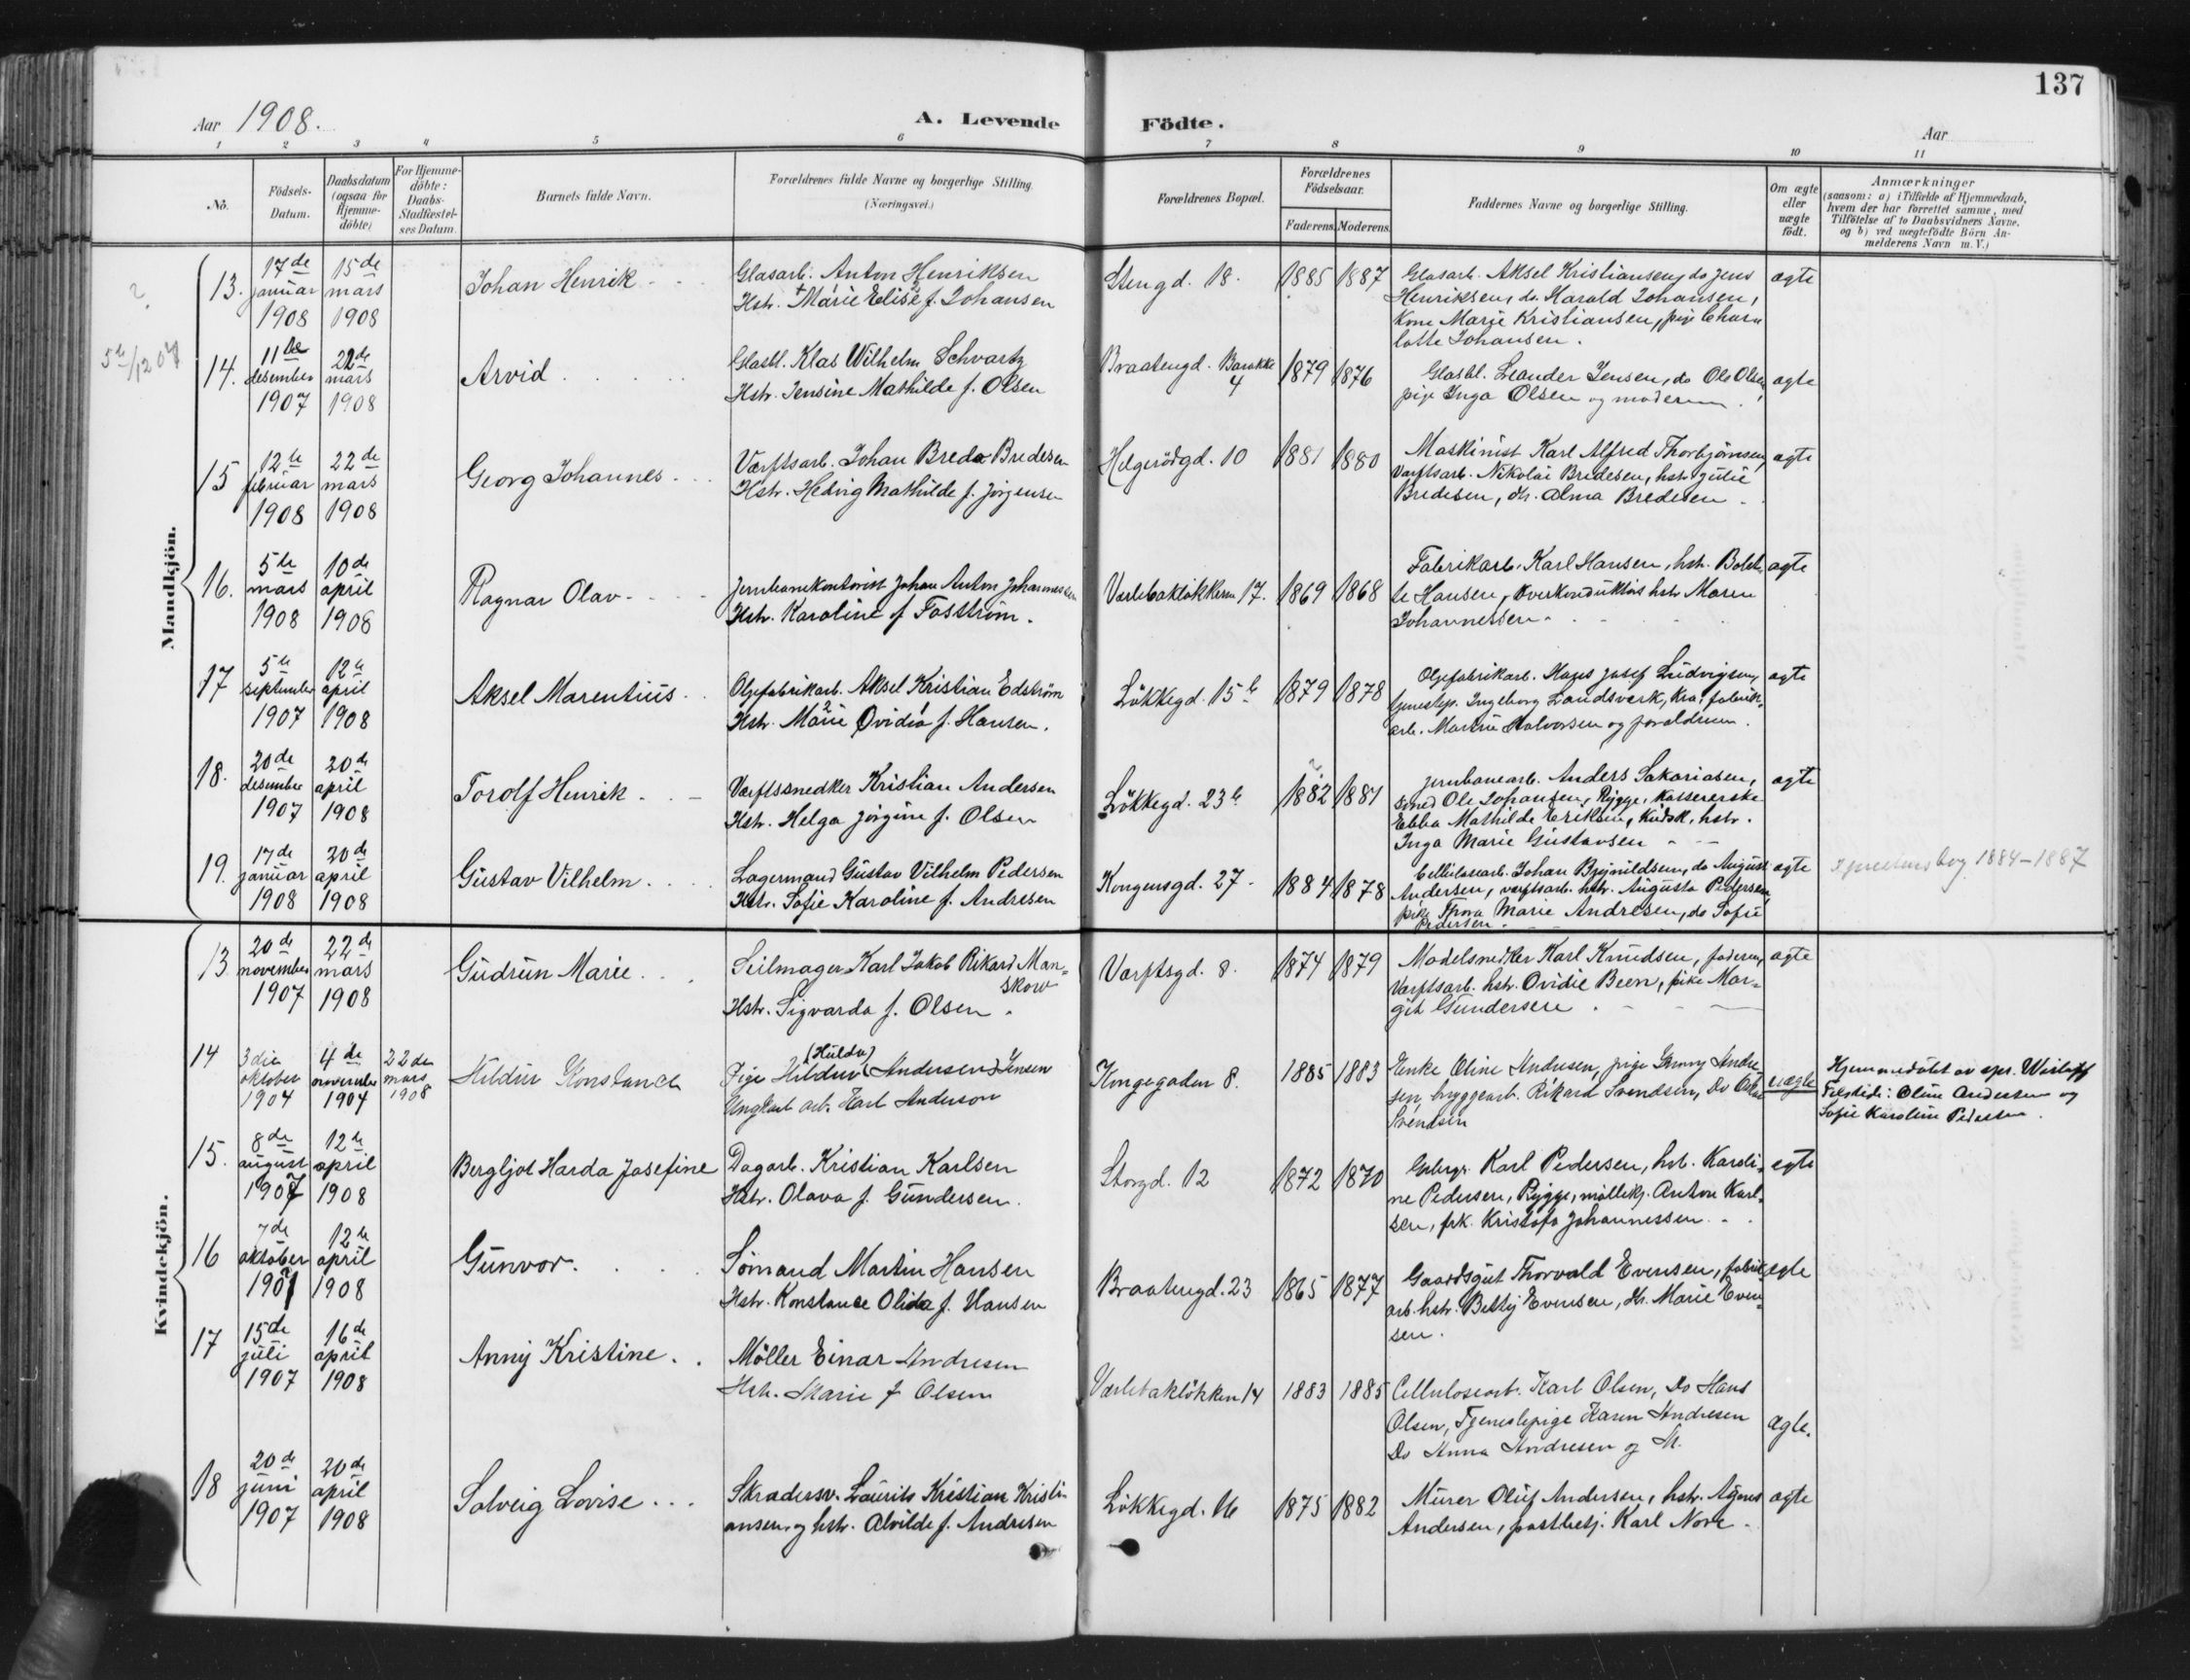 137
Aar 1908.
A. Levende Födte.
Aar
1 2 3 4 5 6 7 8 9 10 11
No.
Födsels-Datum.
Daabsdatum (ogsaa for Hjemme-döbte)
For Hjemme-döbte: Daabs-Stadfæstel-ses Datum.
Barnets fulde Navn.
Forældrenes fulde Navne og borgerlige Stilling. (Næringsvei.)
Forældrenes Bopæl.
Forældrenes Födselsaar.
Faderens. Moderens.
Faddernes Navne og borgerlige Stilling.
Om ægte eller uægte födt.
Anmærkninger
(saasom: a) i Tilfælde af Hjemmedaab, hvem der har forrettet samme, med Tilföielse af to Daabsvidners Navne. og b) ved uægtefödte Börn An-melderens Navn m. V.)
Mandkjön.
13. 17de januar 1908
15de mars 1908
Johan Henrik
Glasarb. Anton Henriksen
Hstr. Marie Elise f. Johansen
Stengd. 18.
1885 1887
Glasarb. Aksel Kristiansen, do Jens
Henriksen, do. Harald Johansen,
Kone Marie Kristiansen, pige Char-
lotte Johansen.
ægte
5te/12 07
14. 11te desember 1907
22de mars 1908
Arvid
Glasbl. Klas Wilhelm Schvartz
Hstr. Jensine Mathilde f. Olsen
Braatengd. Barakke 4
1879 1876
Glasbl. Leander Jensen, do Ole Olsen,
pige Inga Olsen og moderen.
ægte
15 12te februar 1908
22de mars 1908
Georg Johannes
Værftsarb. Johan Breda Bredesen
Hstr. Hedvig Mathilde f. Jörgensen
Helgerödgd. 10
1881 1880
Maskinist Karl Alfred Thorbjörnsen,
værftsarb. Nikolai Bredesen, hstr. Julie
Bredesen, fr. Alma Bredesen
ægte
16. 5te mars 1908
10de april 1908
Ragnar Olav
Jernbanekontorist Johan Anton Johannessen
Hstr. Karoline f. Fosström.
Varlebaklökken 17.
1869 1868
Fabrikarb. Karl Hansen, hstr. Bolet-
te Hansen, Overkonduktörs hstr Maren
Johannessen
ægte
17 5te september 1907
12te april 1908
Aksel Marentius
Oljefabrikarb. Aksel Kristian Edström
Hstr. Marie Ovidia f. Hansen.
Lökkegd. 15b
1879 1878
Oljefabrikarb. Hans Josef Ludvigsen,
tjenestep. Ingeborg Landsverk, Kra., fabrik-
arb. Martin Halvorsen og forældrene.
ægte
18. 20de desember 1907
20de april 1908
Torolf Henrik
Værftssnedker Kristian Andersen
Hstr. Helga Jörgine f. Olsen
Lökkegd. 23b
1882 1881
Jernbanearb. Anders Sakariasen,
smed Ole Johansen, Rygge, Kassererske
Ebba Mathilde Eriksen, Kudsk. hstr.
Inga Marie Gustavsen
ægte
19. 17de januar 1908
20de april 1908
Gustav Vilhelm
Lagermand Gustav Vilhelm Pedersen
Hstr. Sofie Karoline f. Andresen
Kongensgd. 27
1884 1878
Cellulosearb. Johan Brynildsen, do August
Andersen, værftsarb. hstr. Augusta Pedersen,
pike Thora Marie Andresen, do Sofie
Pedersen.
ægte
1884-1887
Kvindekjön.
13. 20de november 1907
22de mars 1908
Gudrun Marie
Seilmager Karl Jakob Rikard Man-
skow
Hstr. Sigvarda f. Olsen
Værftsgd. 8.
1874 1879
Modelsnedker Karl Knudsen, faderen,
værftsarb. hstr. Ovidie Been, pike Mar-
git Gundersen
ægte
14 3die oktober 1904
4de november 1904
22de mars 1908
Hildur Konstance
Pige Hildur (Hulda) (Andersen) Jensen
Ungkarl arb. Karl Anderson
Kongegaden 8.
1885 1883
Enke Oline Andresen, pige Andre-
sen, bryggearb. Rikard Svendsen, Do Oskar
Svendsen
uægte
Hjemmedöbt av spr. Wisløff
Tilstede: Oline Andersen og
Sofie Karoline Pedersen.
15. 8de august 1907
12te april 1908
Bergljot Harda Josefine
Dagarb. Kristian Karlsen
Hstr. Olava f. Gundersen.
Storgd. 12
1872 1870
Karl Pedersen, hst. Karoli-
ne Pedersen, Rygge, möllekj. Anton Karl-
sen, frk. Kristofa Johannessen
egte
16 7de oktober 1907
12te april 1908
Gunvor.
Sömand Martin Hansen
Hstr. Konstanse Olida f. Hansen
Braatengd. 23
1865 1877
Gaardsgut Thorvald Evensen, fabrik-
arb. hstr. Betty Evensen, fr. Marie Even-
sen.
egte
17 15de juli 1907
16de april 1908
Anny Kristine
Möller Einar Andresen
Hstr. Marie f Olsen
Varlebaklökken 14
1883 1885
Cellulosearb. Karl Olsen, Do Hans
Olsen, Tjenestepige Karen Andresen
Do Anna Andresen og M.
ægte.
18 20de juni 1907
20de april 1908
Solveig Lovise
Skradersv. Laurits Kristian Kristi-
ansen og hstr. Alvilde f. Andresen
Lökkegd. 16
1875 1882
Murer Oluf Andersen, hstr. Agnes
Andersen, postbetj. Karl Nore
ægte